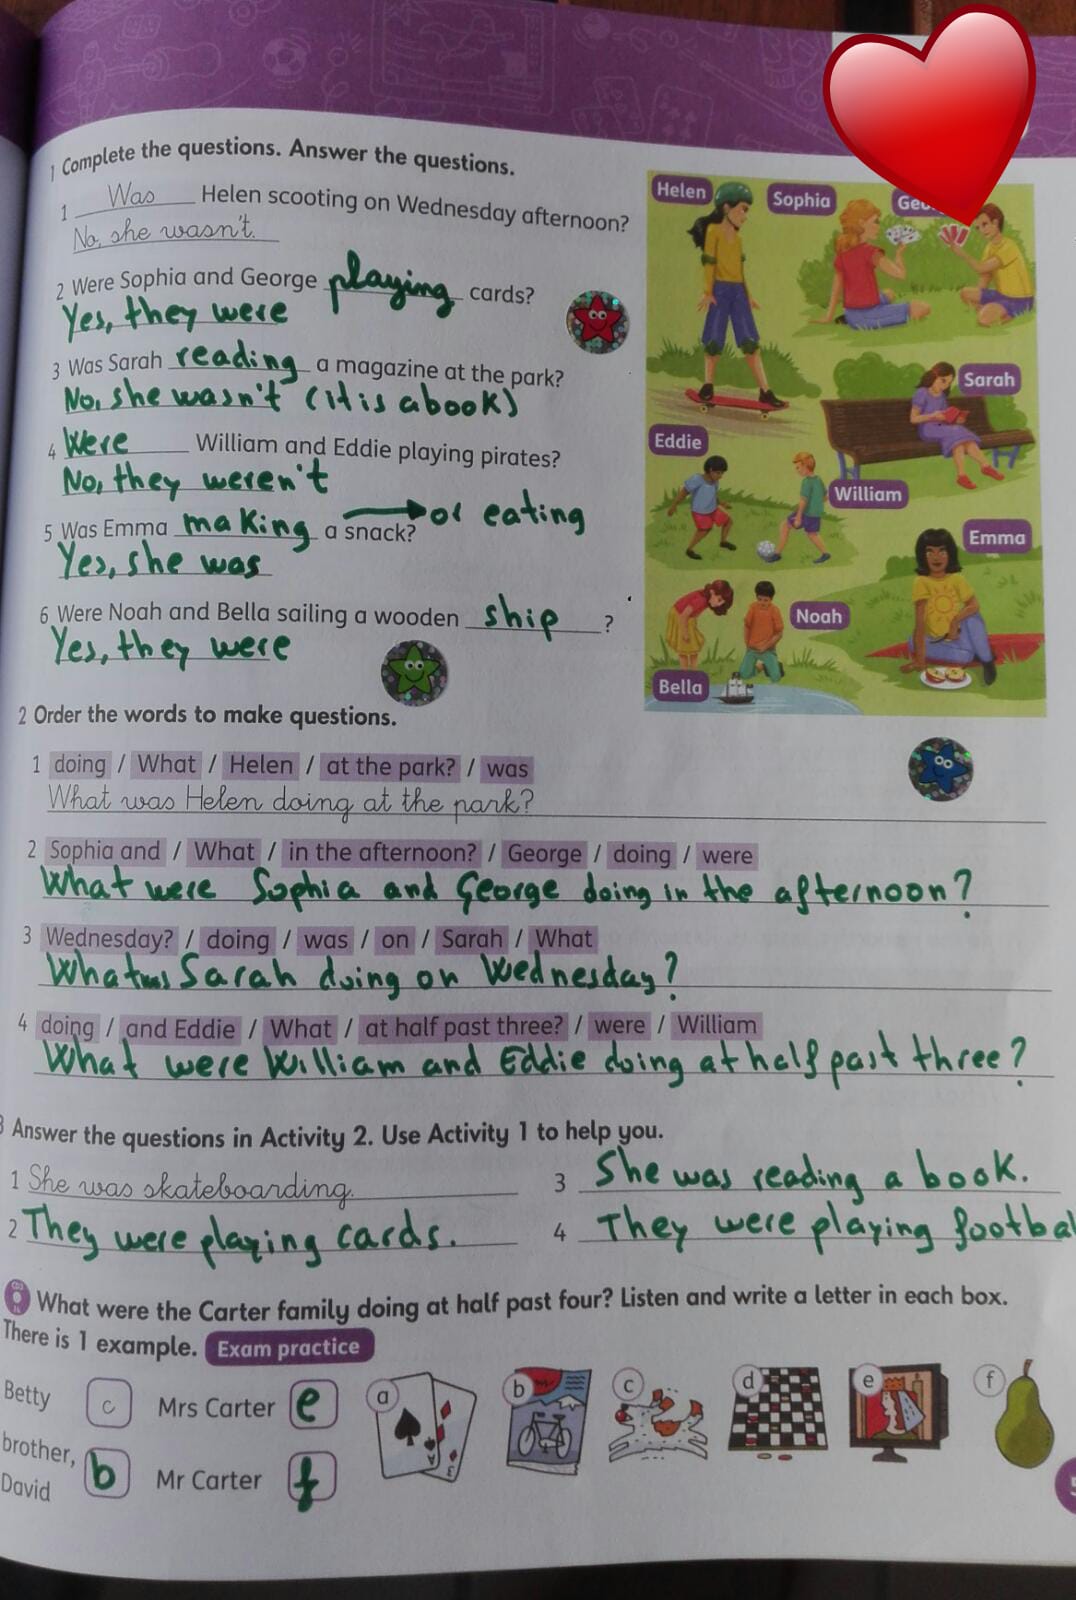 1 Complete the questions. Answer the questions.
1 Was Helen scooting on Wednesday afternoon?
No, she wasn't.
2 Were Sophia and George playing cards?
Yes, they were
3 Was Sarah reading a magazine at the park?
No, she wasn't (it is a book)
4 Were William and Eddie playing pirates?
No, they weren't
5 Was Emma making a snack? or eating
Yes, she was
6 Were Noah and Bella sailing a wooden ship?
Yes, they were
Helen
Sophia
Sarah
Eddie
William
Emma
Noah
Bella
2 Order the words to make questions.
1 doing / What / Helen / at the park? / was
What was Helen doing at the park?
2 Sophia and / What / in the afternoon? / George / doing / were
What were Sophia and George doing in the afternoon?
3 Wednesday? / doing / was / on / Sarah / What
What was Sarah doing on Wednesday?
4 doing / and Eddie / What / at half past three? / were / William
What were William and Eddie doing at half past three?
3 Answer the questions in Activity 2. Use Activity 1 to help you.
1 She was skateboarding.
2 They were playing cards.
3 She was reading a book.
4 They were playing footbal
What were the Carter family doing at half past four? Listen and write a letter in each box.
There is 1 example. Exam practice
Betty c Mrs Carter e
brother, David b Mr Carter f
a b c d e f